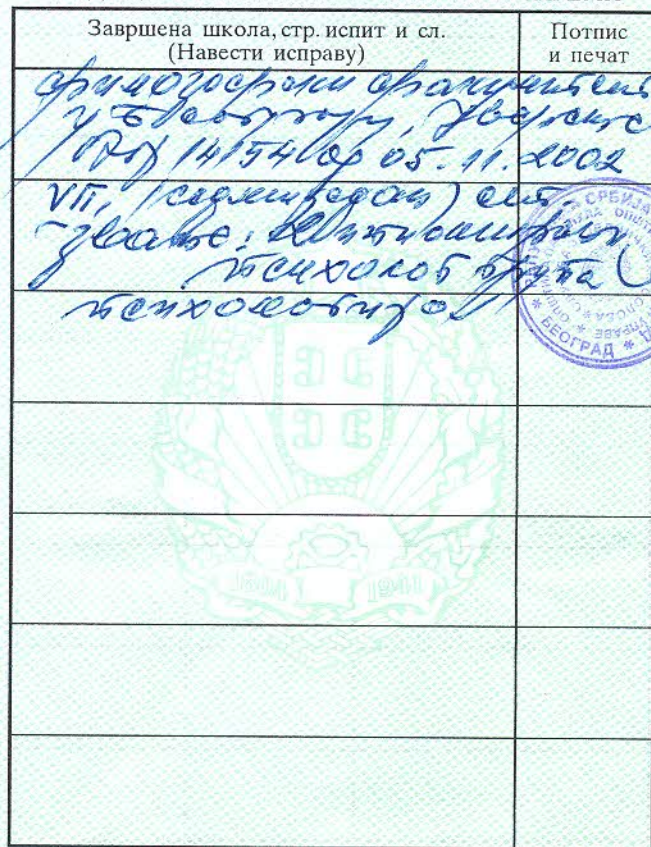 Завршена школа, стр. испит и сл.
(Навести исправу)
Потпис
и печат
филозофски факултет
у Београду, Уверење
14154 од 05.11.2002
VII, (седми један) ст.
звање: Дипломирани
психолог група
психологија
СРБИЈА
БЕОГРАД